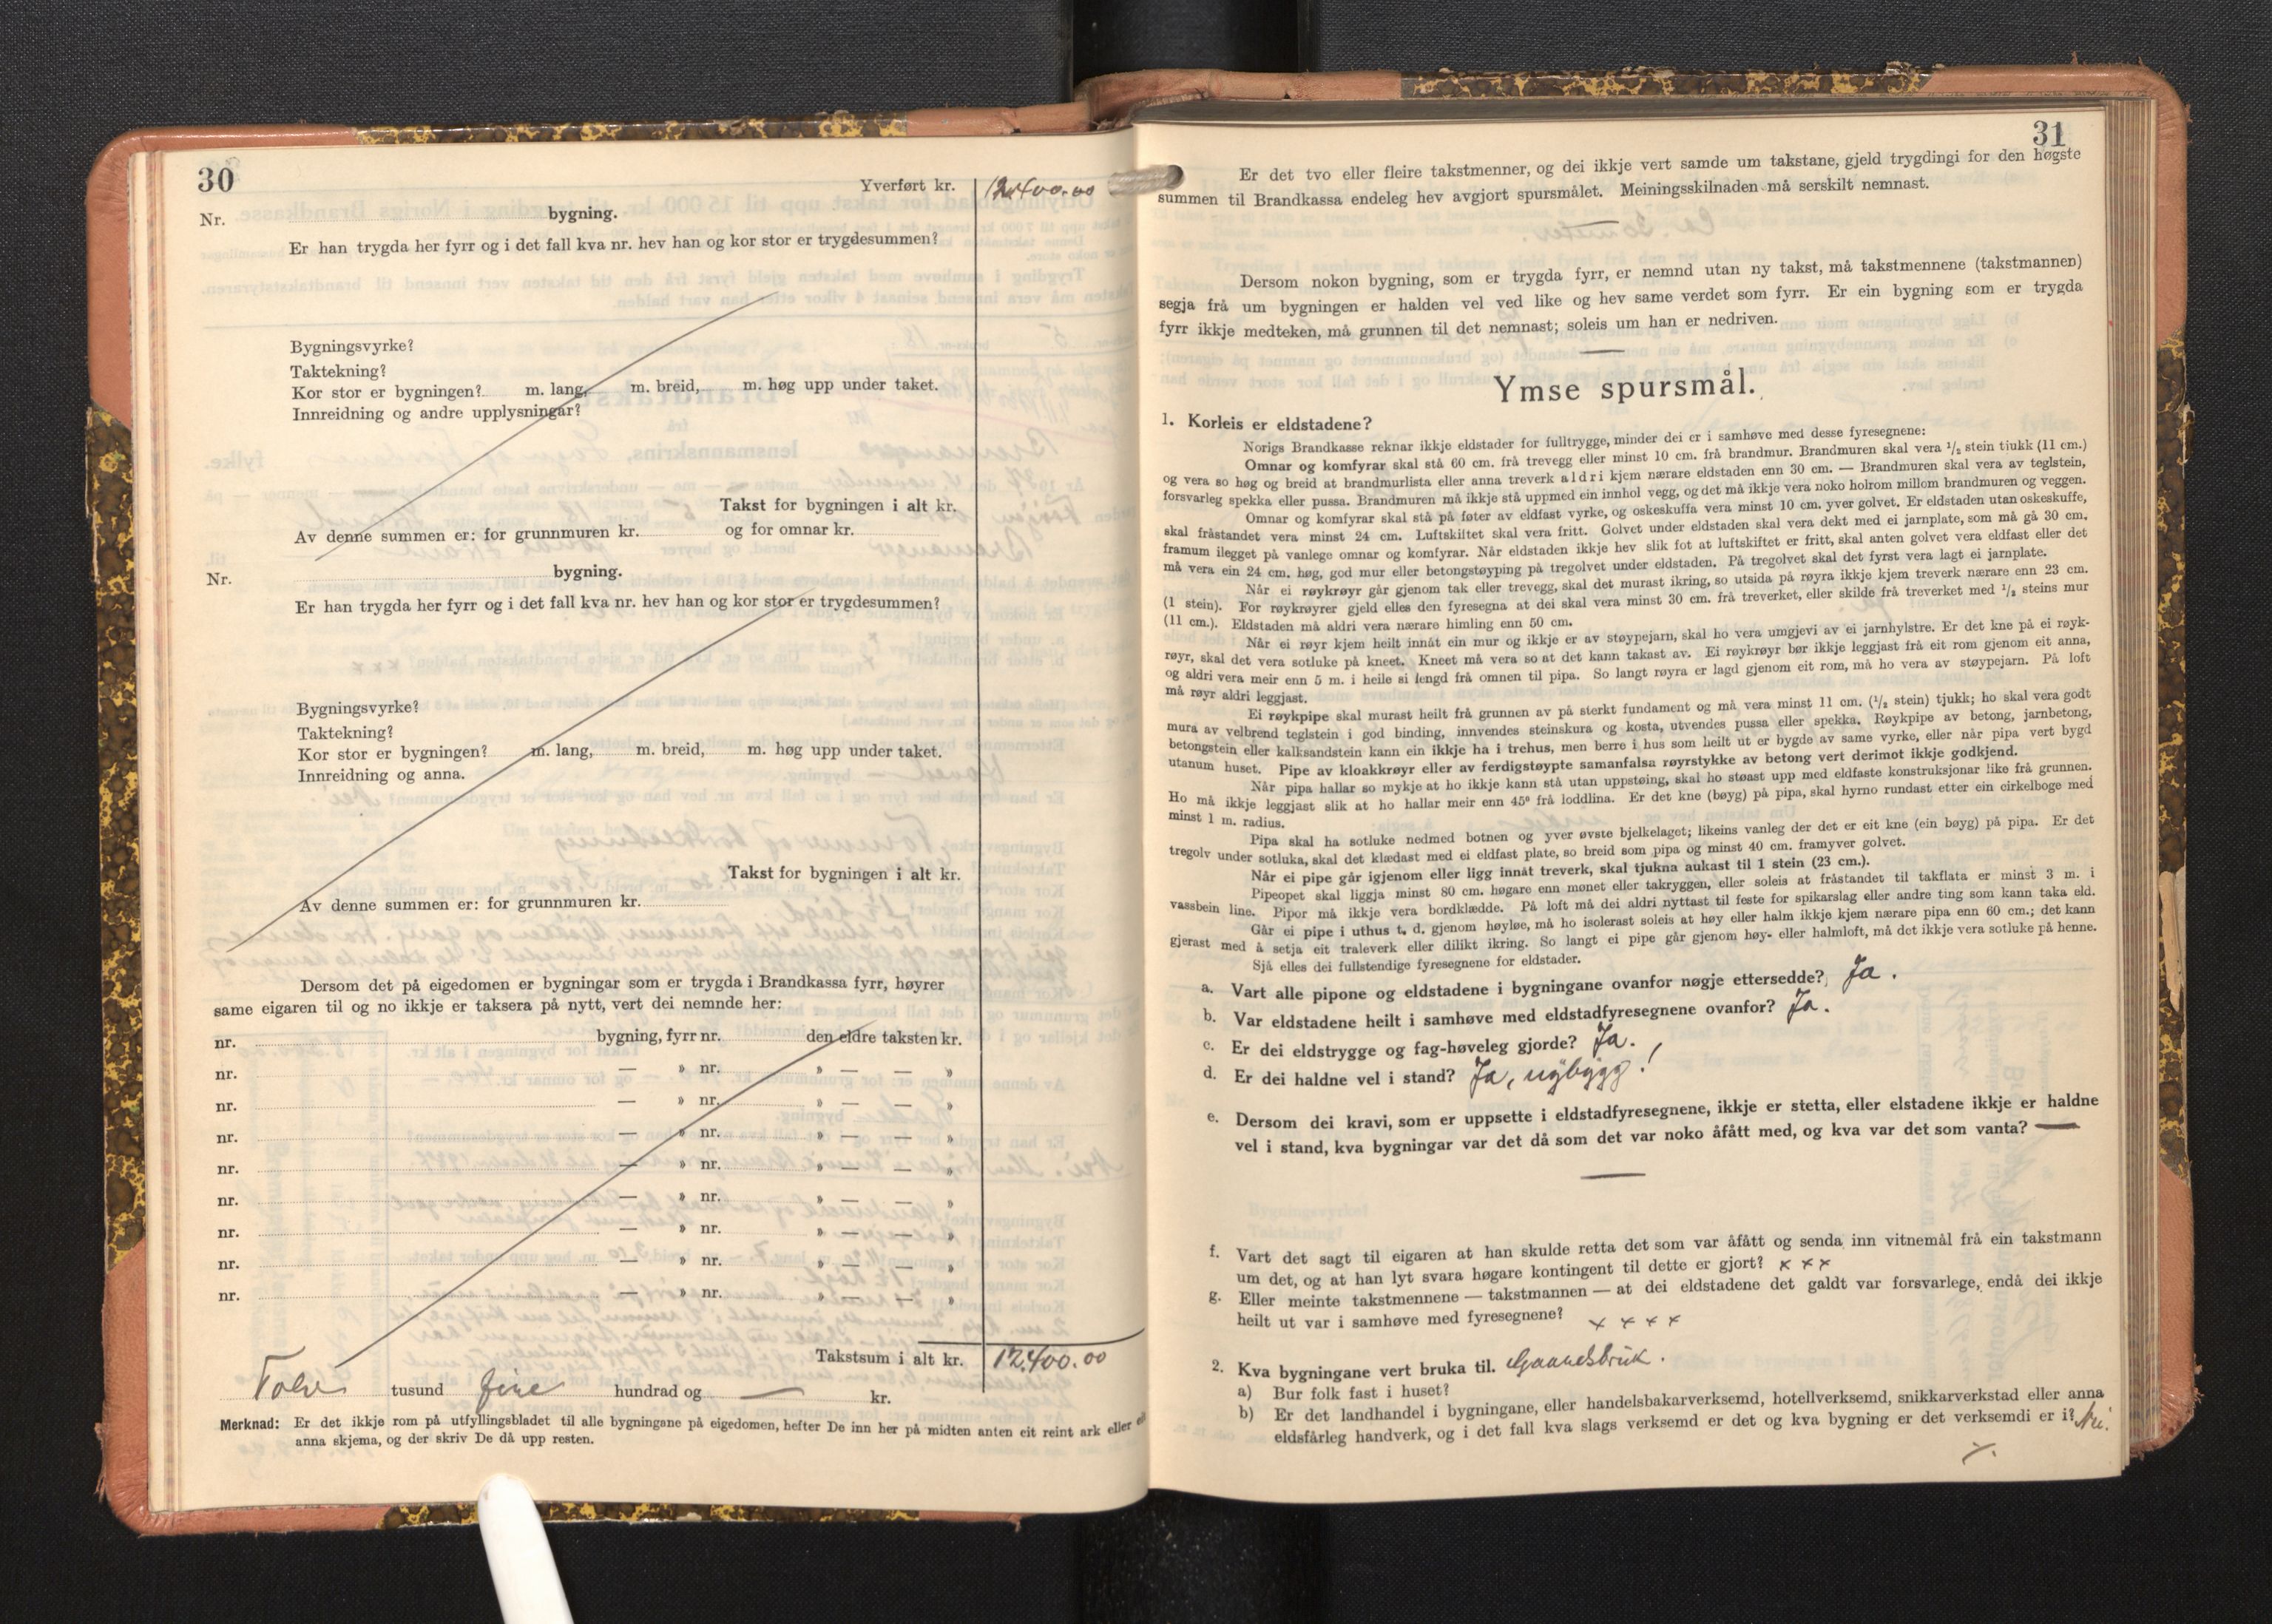 30
Yverført kr. 12400.00
Nr. bygning.
Er han trygda her fyrr og i det fall kva nr. hev han og kor stor er trygdesummen?
Bygningsvyrke?
Taktekning?
Kor stor er bygningen? m. lang, m. breid, m. høg upp under taket.
Innreidning og andre upplysningar?
Takst for bygningen i alt kr.
Av denne summen er: for grunnmuren kr. og for omnar kr.
Nr. bygning.
Er han trygda her fyrr og i det fall kva nr. hev han og kor stor er trygdesummen?
Bygningsvyrke?
Taktekning?
Kor stor er bygningen? m. lang, m. breid, m. høg upp under taket.
Innreidning og anna.
Takst for bygningen i alt kr.
Av denne summen er: for grunnmuren kr.
Dersom det på eigedomen er bygningar som er trygda i Brandkassa fyrr, høyrer
same eigaren til og no ikkje er taksera på nytt, vert dei nemnde her:
nr. bygning, fyrr nr. den eldre taksten kr.
nr. — » nr. » — — »
nr. — » nr. » — — »
nr. — » nr. » — — »
nr. — » nr. » — — »
nr. — » nr. » — — »
nr. — » nr. » — — »
nr. — » nr. » — — »
nr. — » nr. » — — »
Takstsum i alt kr. 12.400.00
Tolv tusund fire hundrad og — kr.
Merknad: Er det ikkje rom på utfyllingsbladet til alle bygningane på eigedomen, hefter De inn her på midten anten eit reint ark eller eit
anna skjema, og der skriv De då upp resten.
31
Er det tvo eller fleire takstmenner, og dei ikkje vert samde um takstane, gjeld trygdingi for den høgste
summen til Brandkassa endeleg hev avgjort spursmålet. Meiningsskilnaden må serskilt nemnast.
Dersom nokon bygning, som er trygda fyrr, er nemnd utan ny takst, må takstmennene (takstmannen)
segja frå um bygningen er halden vel ved like og hev same verdet som fyrr. Er ein bygning som er trygda
fyrr ikkje medteken, må grunnen til det nemnast; soleis um han er nedriven.
Ymse spursmål.
1. Korleis er eldstadene?
Norigs Brandkasse reknar ikkje eldstader for fulltrygge, minder dei er i samhøve med desse fyresegnene:
Omnar og komfyrar skal stå 60 cm. frå trevegg eller minst 10 cm. frå brandmur. Brandmuren skal vera ½ stein tjukk (11 cm.)
og vera so høg og breid at brandmurlista eller anna treverk aldri kjem nærare eldstaden enn 30 cm. — Brandmuren skal vera av teglstein,
forsvarleg spekka eller pussa. Brandmuren må ikkje stå uppmed ein innhol vegg, og det må ikkje vera noko holrom millom brandmuren og veggen.
Omnar og komfyrar skal stå på føter av eldfast vyrke, og oskeskuffa vera minst 10 cm. yver golvet. Er eldstaden utan oskeskuffe,
skal fråstandet vera minst 24 cm. Luftskiftet skal vera fritt. Golvet under eldstaden skal vera dekt med ei jarnplate, som må gå 30 cm.
framum ilegget på vanlege omnar og komfyrar. Når eldstaden ikkje hev slik fot at luftskiftet er fritt, skal anten golvet vera eldfast eller det
må vera ein 24 cm. høg, god mur eller betongstøyping på tregolvet under eldstaden. På tregolvet skal det fyrst vera lagt ei jarnplate.
Når ei røykrøyr går gjenom tak eller trevegg, skal det murast ikring, so utsida på røyra ikkje kjem treverk nærare enn 23 cm.
(1 stein). For røykrøyrer gjeld elles den fyresegna at dei skal vera minst 30 cm. frå treverket, eller skilde frå treverket med ½ steins mur
(11 cm.). Eldstaden må aldri vera nærare himling enn 50 cm.
Når ei røyr kjem heilt innåt ein mur og ikkje er av støypejarn, skal ho vera umgjevi av ei jarnhylstre. Er det kne på ei røyk-
røyr, skal det vera sotluke på kneet. Kneet må vera so at det kann takast av. Ei røykrøyr bør ikkje leggjast frå eit rom gjenom eit anna,
og aldri vera meir enn 5 m. i heile si lengd frå omnen til pipa. So langt røyra er lagd gjenom eit rom, må ho vera av støypejarn. På loft
må røyr aldri leggjast.
Ei røykpipe skal murast heilt frå grunnen av på sterkt fundament og må vera minst 11 cm. (½ stein) tjukk; ho skal vera godt
mura av velbrend teglstein i god binding, innvendes steinskura og kosta, utvendes pussa eller spekka. Røykpipe av betong, jarnbetong,
betongstein eller kalksandstein kann ein ikkje ha i trehus, men berre i hus som heilt ut er bygde av same vyrke, eller når pipa vert bygd
utanum huset. Pipe av kloakkrøyr eller av ferdigstøypte samanfalsa røyrstykke av betong vert derimot ikkje godkjend.
Når pipa hallar so mykje at ho ikkje kann stå utan uppstøing, skal ho støast upp med eldfaste konstruksjonar like frå grunnen.
Ho må ikkje leggjast slik at ho hallar meir enn 45° frå loddlina. Er det kne (bøyg) på pipa, skal hyrno rundast etter ein cirkelboge med
minst 1 m. radius.
Pipa skal ha sotluke nedmed botnen og yver øvste bjelkelaget; likeins vanleg der det er eit kne (ein bøyg) på pipa. Er det
tregolv under sotluka, skal det klædast med ei eldfast plate, so breid som pipa og minst 40 cm. framyver golvet.
Når ei pipe går igjenom eller ligg innåt treverk, skal tjukna aukast til 1 stein (23 cm.).
Pipeopet skal liggja minst 80 cm. høgare enn mønet eller takryggen, eller soleis at fråstandet til takflata er minst 3 m. i
vassbein line. Pipor må ikkje vera bordklædde. På loft må dei aldri nyttast til feste for spikarslag eller andre ting som kann taka eld.
Går ei pipe i uthus t. d. gjenom høyløe, må ho isolerast soleis at høy eller halm ikkje kjem nærare pipa enn 60 cm.; det kann
gjerast med å setja eit traleverk eller dilikt ikring. So langt ei pipe går gjenom høy- eller halmloft, må det ikkje vera sotluke på henne.
Sjå elles dei fullstendige fyresegnene for eldstader.
a. Vart alle pipone og eldstadene i bygningane ovanfor nøgje ettersedde? Ja.
b. Var eldstadene heilt i samhøve med eldstadfyresegnene ovanfor? Ja.
c. Er dei eldstrygge og fag-høveleg gjorde? Ja.
d. Er dei haldne vel i stand? Ja, nybygg!
e. Dersom dei kravi, som er uppsette i eldstadfyresegnene, ikkje er stetta, eller elstadene ikkje er haldne
vel i stand, kva bygningar var det då som det var noko åfått med, og kva var det som vanta? —
f. Vart det sagt til eigaren at han skulde retta det som var åfått og senda inn vitnemål frå ein takstmann
um det, og at han lyt svara høgare kontingent til dette er gjort? x x x
g. Eller meinte takstmennene — takstmannen — at dei eldstadene det galdt var forsvarlege, endå dei ikkje
heilt ut var i samhøve med fyresegnene? x x x x
2. Kva bygningane vert bruka til. Gaardsbruk.
a) Bur folk fast i huset?
b) Er det landhandel i bygningane, eller handelsbakarverksemd, hotellverksemd, snikkarverkstad eller anna
eldsfårleg handverk, og i det fall kva slags verksemd er det og kva bygning er det verksemdi er i? Nei.